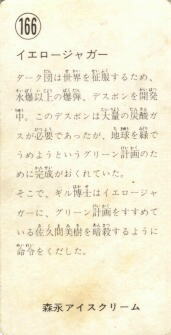 166
イエロージャガー
ダーク団は世界を征服するため、
水爆以上の爆弾、デスボンを開発
中。このデスボンは大量の炭酸ガ
スが必要であったが、地球を緑で
うめようというグリーン計画のた
めに完成がおくれていた。
そこで、ギル博士はイエロージャ
ガーに、グリーン計画をすすめて
いる佐久間美樹を暗殺するように
命令をくだした。
森永アイスクリーム